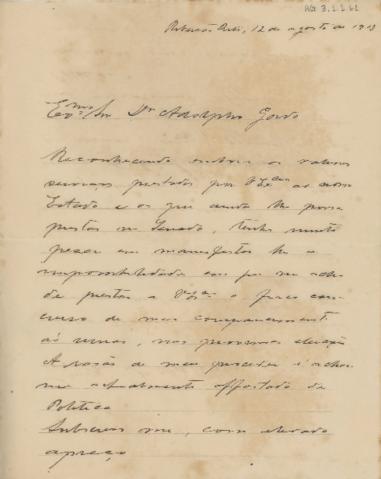 AG 3.1.1.61
12 de agosto de 1913
Exmo. Sr. Dr. Adolpho Gordo
Reconhecendo embora os valiosos
serviços prestados por V. Excia. ao nosso
Estado e os que ainda lhe possa
prestar no Senado, tenho muito
pesar em manifestar-lhe a
impossibilidade em que me acho
de prestar a V. Excia. o fraco con-
curso de meu comparecimento
ás urnas, nas proximas eleições
A rasão de meu proceder é achar-
me actualmente affastado da
Politica
Subscrevo-me, com elevado
apreço